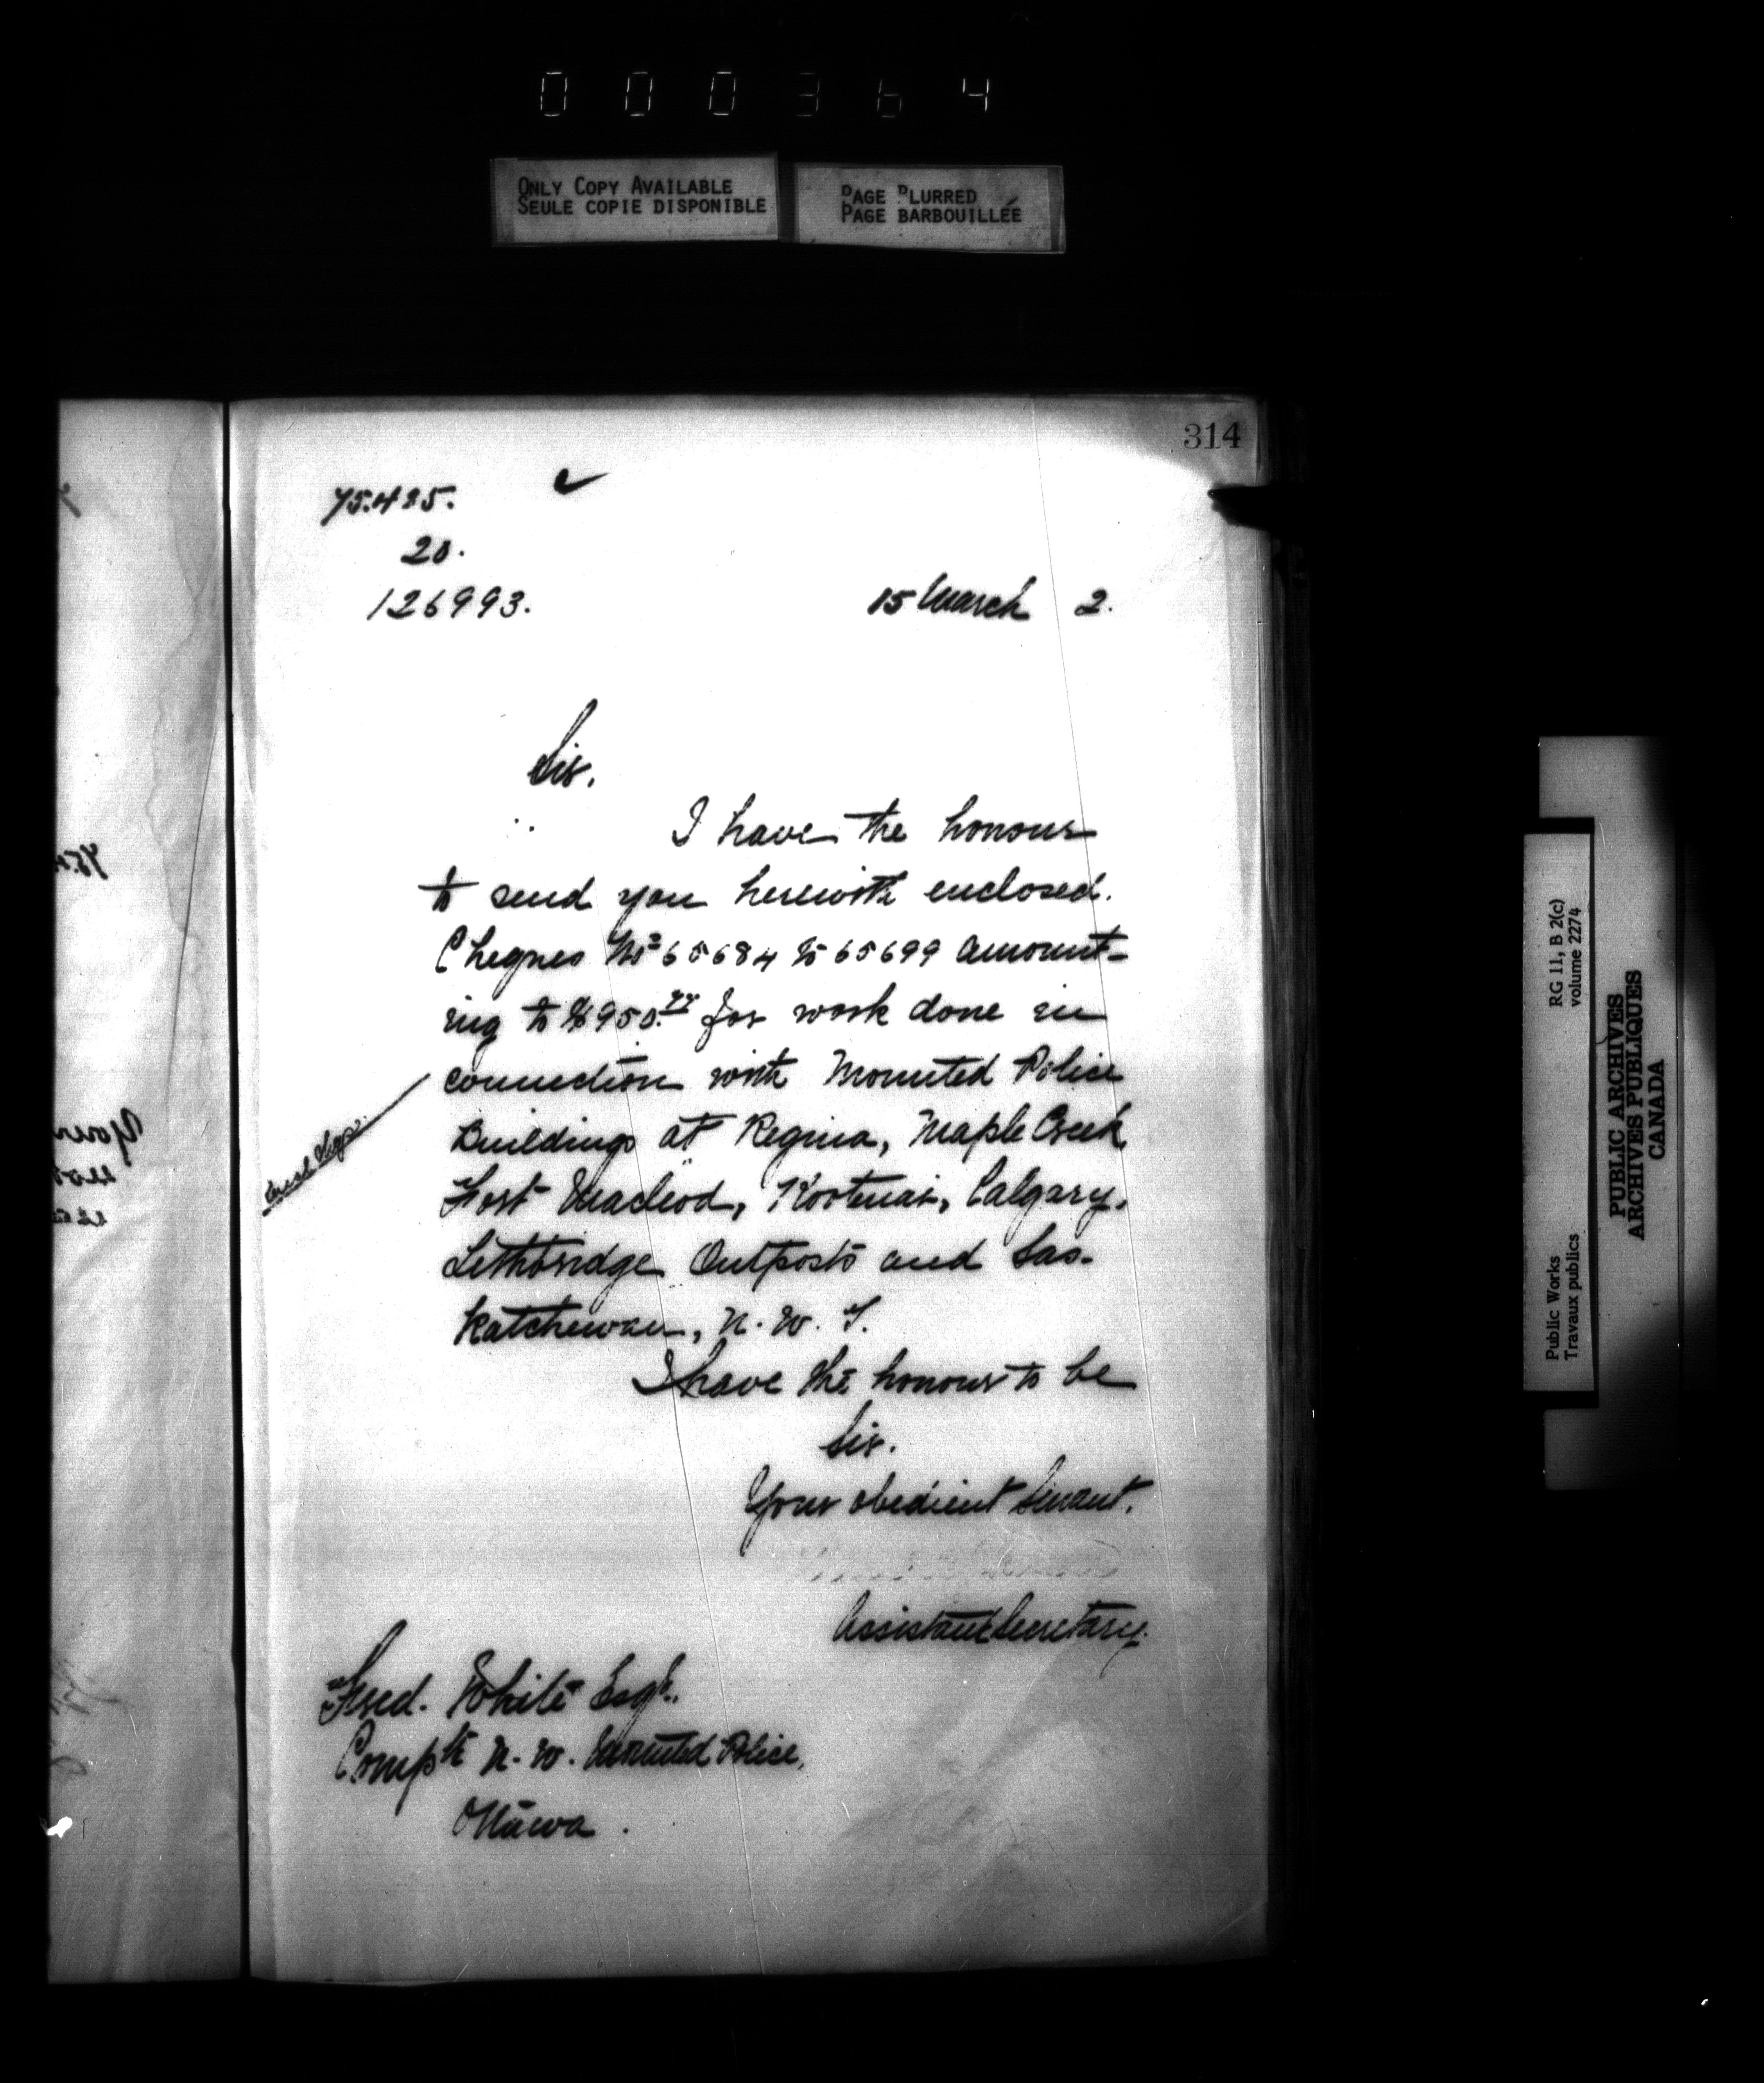 000364
ONLY COPY AVAILABLE
SEULE COPIE DISPONIBLE
PAGE BLURRED
PAGE BARBOUILLÉE
314
75.485.
20.
126993.
15 March 2.
Sir.
I have the honour
to send you herewith enclosed.
Cheques Nos 65684 to 65699 amount-
ing to $950.77 for work done in
connection with Mounted Police
Buildings at Regina, Maple Creek
Fort Macleod, Kootenai, Calgary,
Lethbridge Outposts and Sas-
katchewan, N. W. T.
I have the honour to be
Sir.
Your obedient Servant.
Assistant Secretary.
Fred. White Esqr.,
Compt N. W. Mounted Police,
Ottawa.
Public Works
Travaux publics
RG 11, B 2(c)
volume 2274
PUBLIC ARCHIVES
ARCHIVES PUBLIQUES
CANADA